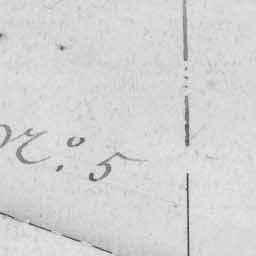 N.º 5